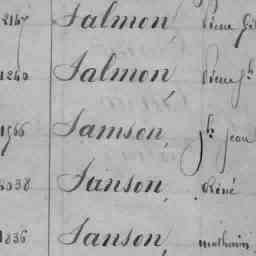 2147 Salmon, Pierre
1240 Salmon, Pierre
1966 Samson, Jh Jean
2038 Sanson, René
1836 Sanson, mathurin